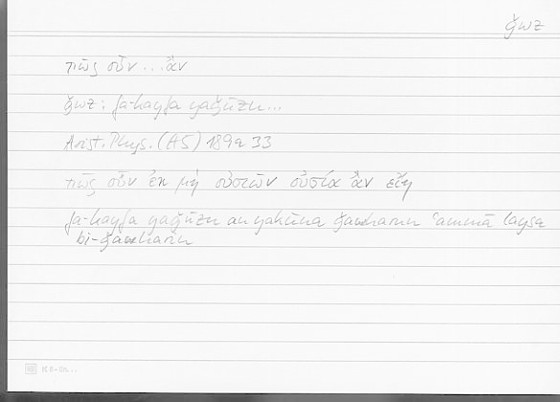 ǧwz
πῶς οὖν ... ἄν
ǧwz : fa-kayfa yaǧūzu ...
Arist. Phys. (A5) 189a 33
πῶς οὖν ἐκ μὴ οὐσιῶν οὐσία ἂν εἴη
fa-kayfa yaǧūzu an yakūna ǧawharun ʿammā laysa
bi-ǧawharin